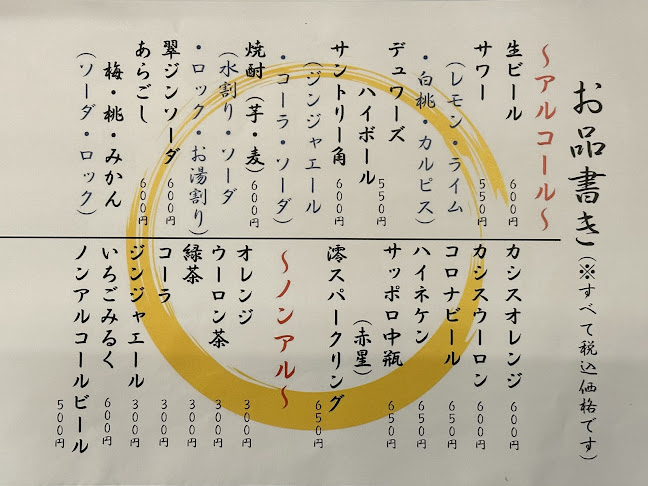 お品書き(※すべて税込価格です)
～アルコール～
生ビール 600円
サワー 550円
(レモン・ライム
・白桃・カルピス)
デュワーズ
ハイボール 550円
サントリー角 600円
(ジンジャエール
・コーラ・ソーダ)
焼酎(芋・麦) 600円
(水割り・ソーダ
・ロック・お湯割り)
翠ジンソーダ 600円
あらごし 600円
梅・桃・みかん
(ソーダ・ロック)
カシスオレンジ 600円
カシスウーロン 600円
コロナビール 650円
ハイネケン 650円
サッポロ中瓶 650円
(赤星)
澪スパークリング 650円
～ノンアル～
オレンジ 300円
ウーロン茶 300円
緑茶 300円
コーラ 300円
ジンジャエール 300円
いちごみるく 600円
ノンアルコールビール 500円